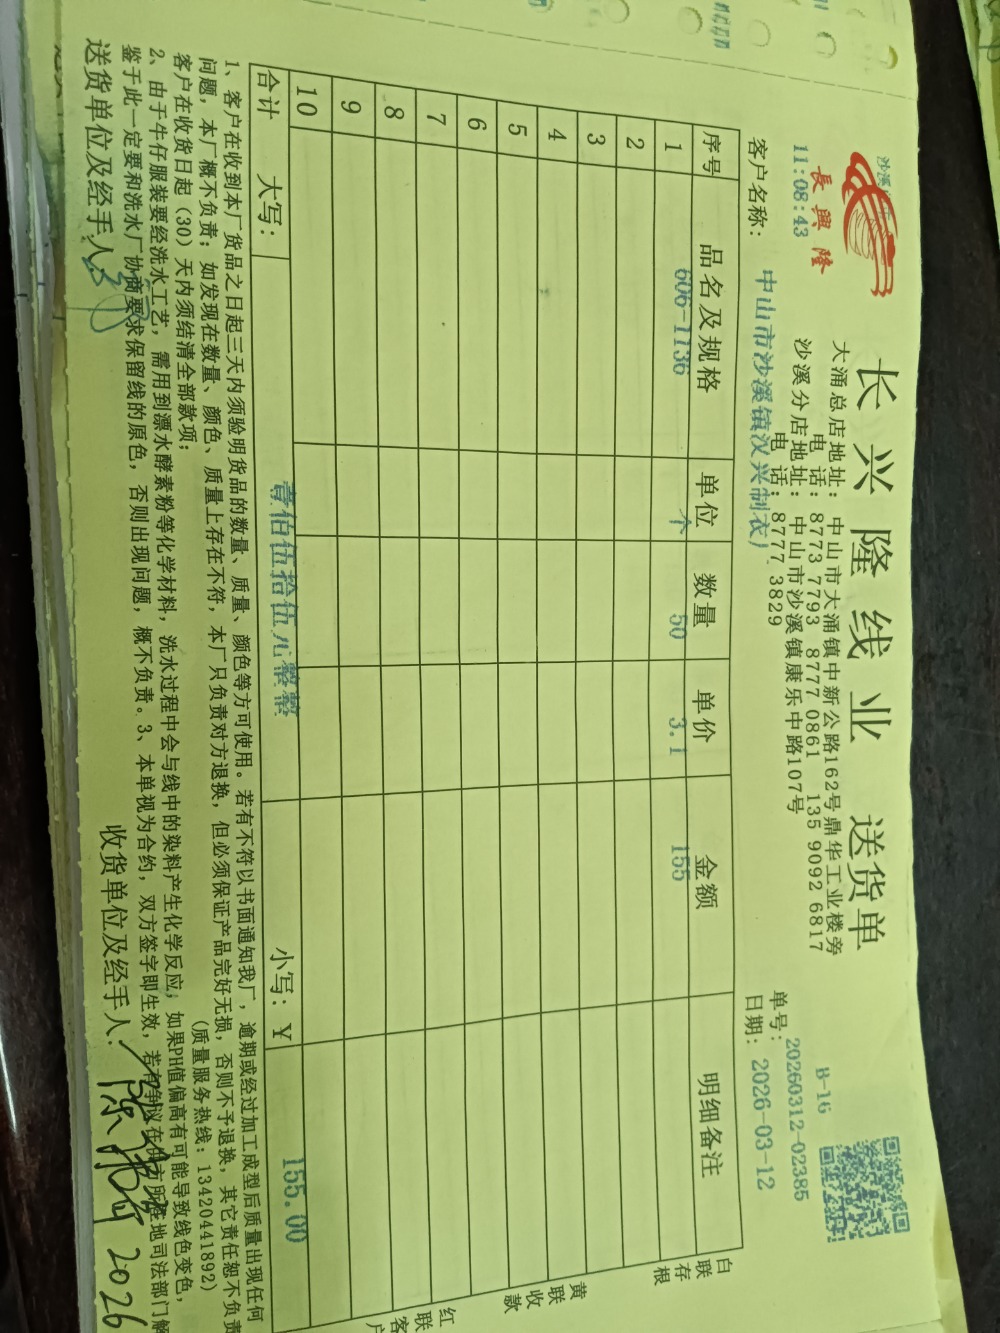 长兴隆线业 送货单
長興隆
11:08:43
大涌总店地址：中山市大涌镇中新公路162号鼎华工业楼旁
电 话：8773 7793 8777 0861 135 9092 6817
沙溪分店地址：中山市沙溪镇康乐中路107号
电 话：8777 3829
B-16
单号：20260312-02385
日期：2026-03-12
客户名称：中山市沙溪镇汉兴制衣厂
序号 品名及规格 单位 数量 单价 金额 明细备注
1 606-1136 个 50 3.1 155
2
3
4
5
6
7
8
9
10
合计 大写： 壹佰伍拾伍元整整 小写：￥ 155.00
白联存根
黄联收款
红联客户
1、客户在收到本厂货品之日起三天内须验明货品的数量、质量、颜色等方可使用。若有不符以书面通知我厂，逾期或经过加工成型后质量出现任何
问题，本厂概不负责；如发现在数量、颜色、质量上存在不符，本厂只负责对方退换，但必须保证产品完好无损，否则不予退换，其它责任恕不负责
客户在收货日起（30）天内须结清全部款项； （质量服务热线：13420441892）
2、由于牛仔服装要经洗水工艺，需用到漂水酵素粉等化学材料，洗水过程中会与线中的染料产生化学反应；如果PH值偏高有可能导致线色变色，
鉴于此一定要和洗水厂协商要求保留线的原色，否则出现问题，概不负责。3、本单视为合约，双方签字即生效，若有争议在供方所在地司法部门解
送货单位及经手人： 收货单位及经手人：
2026